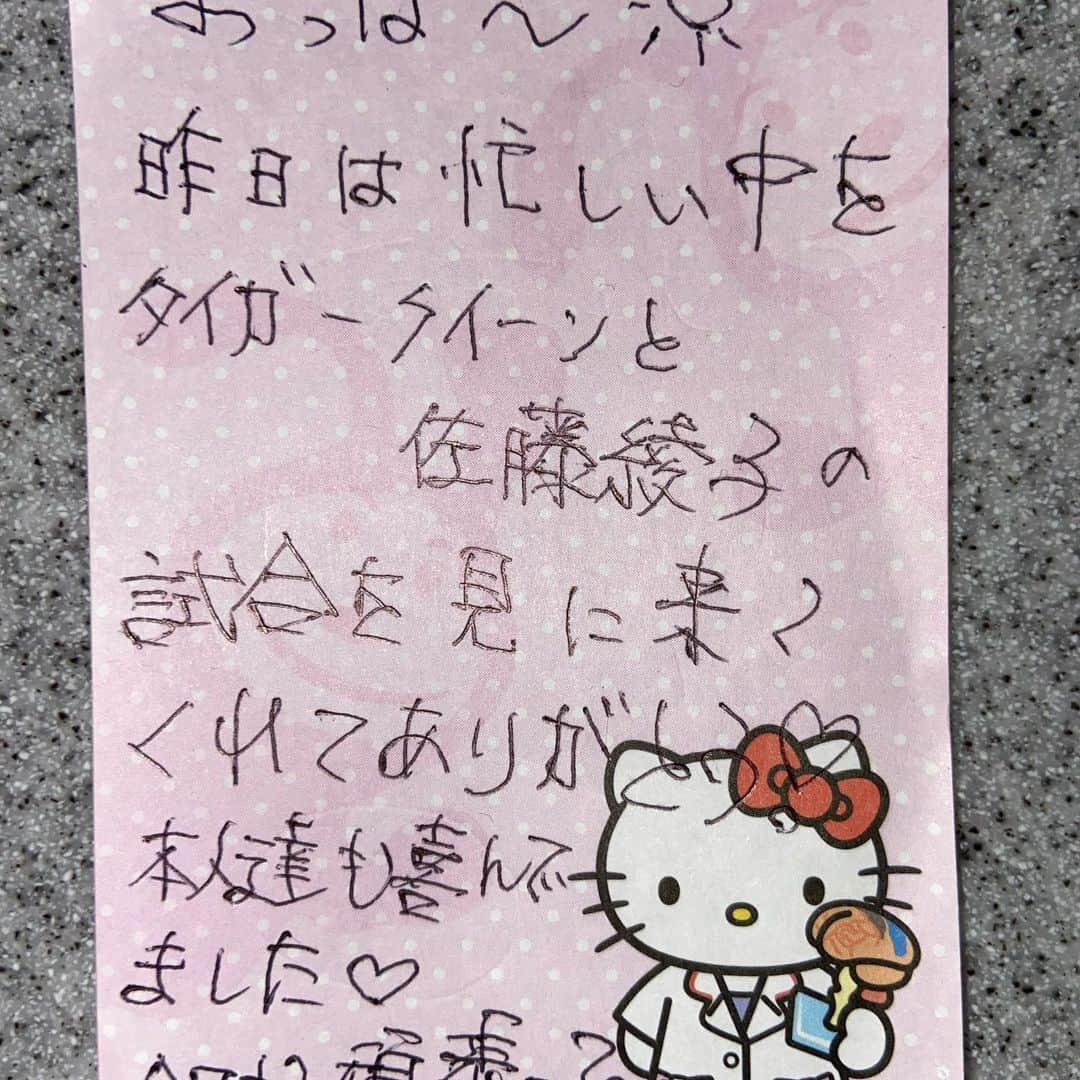 おっは〜
昨日は忙しい中を
タイガークイーンと
佐藤綾子の
試合を見に来て
くれてありがとう
本人達も喜んで
ました♡
今日も頑張っ